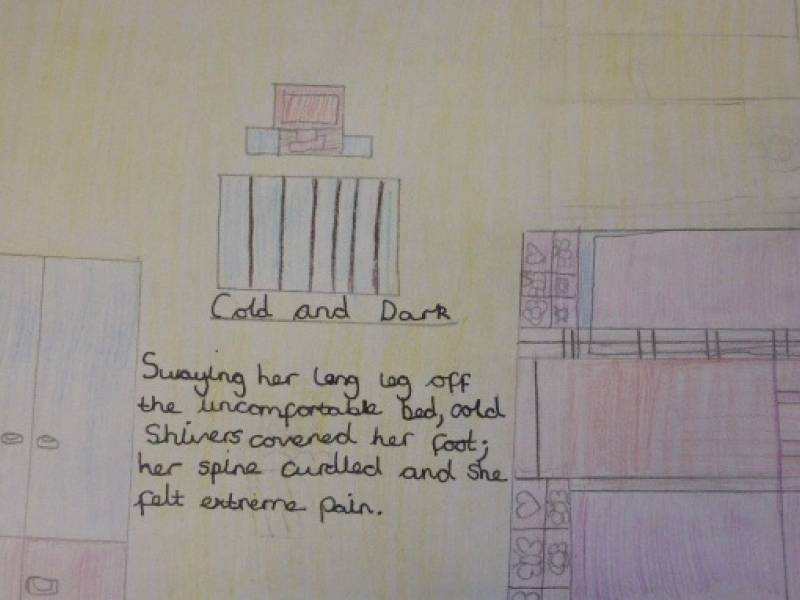 Cold and Dark
Swaying her long leg off
the uncomfortable bed, cold
Shivers covered her foot;
her spine curdled and she
felt extreme pain.